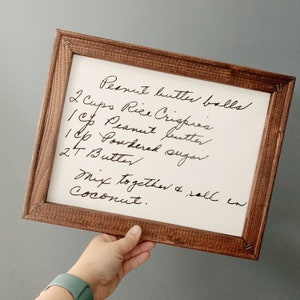 Peanut butter balls
2 Cups Rice Crispies
1 cp Peanut butter
1 cp Powdered sugar
2 T Butter
Mix together & roll in
Coconut.